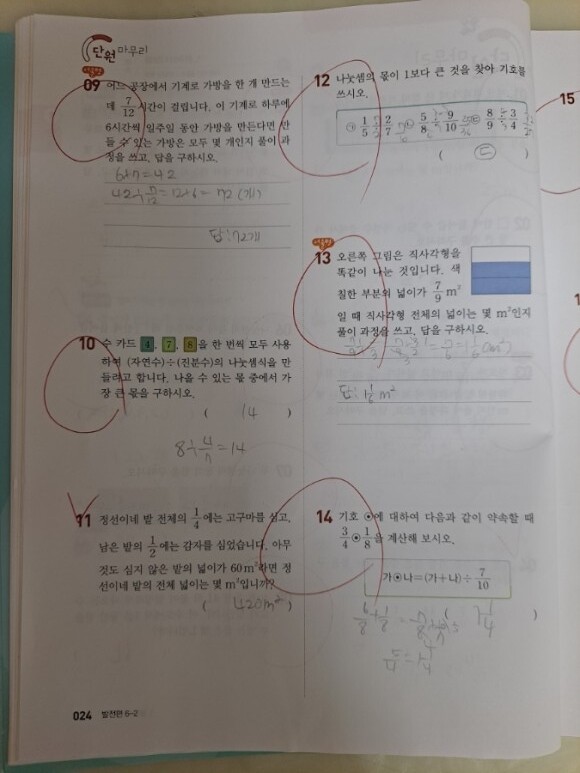 단원 마무리
서술형
09 어느 공장에서 기계로 가방을 한 개 만드는
데 7/12 시간이 걸립니다. 이 기계로 하루에
6시간씩 일주일 동안 가방을 만든다면 만
들 수 있는 가방은 모두 몇 개인지 풀이 과
정을 쓰고, 답을 구하시오.
6×7=42
42÷7/12=12×6=72(개)
답: 72개
10 수 카드 4, 7, 8 을 한 번씩 모두 사용
하여 (자연수)÷(진분수)의 나눗셈식을 만
들려고 합니다. 나올 수 있는 몫 중에서 가
장 큰 몫을 구하시오.
( 14 )
8÷4/7=14
11 정선이네 밭 전체의 1/4에는 고구마를 심고,
남은 밭의 1/2에는 감자를 심었습니다. 아무
것도 심지 않은 밭의 넓이가 60 m²라면 정
선이네 밭의 전체 넓이는 몇 m²입니까?
( 420m² )
024 발전편 6-2
12 나눗셈의 몫이 1보다 큰 것을 찾아 기호를
쓰시오.
㉠ 1/5÷2/7 ㉡ 5/8÷9/10 ㉢ 8/9÷3/4
( ㉢ )
서술형
13 오른쪽 그림은 직사각형을
똑같이 나눈 것입니다. 색
칠한 부분의 넓이가 7/9 m²
일 때 직사각형 전체의 넓이는 몇 m²인지
풀이 과정을 쓰고, 답을 구하시오.
=7/6=1 1/6(m²)
답: 1 1/6 m²
14 기호 ⊙에 대하여 다음과 같이 약속할 때
3/4⊙1/8을 계산해 보시오.
가⊙나=(가+나)÷7/10
( 1 1/4 )
6/8+1/8=7/8
5/4=1 1/4
15